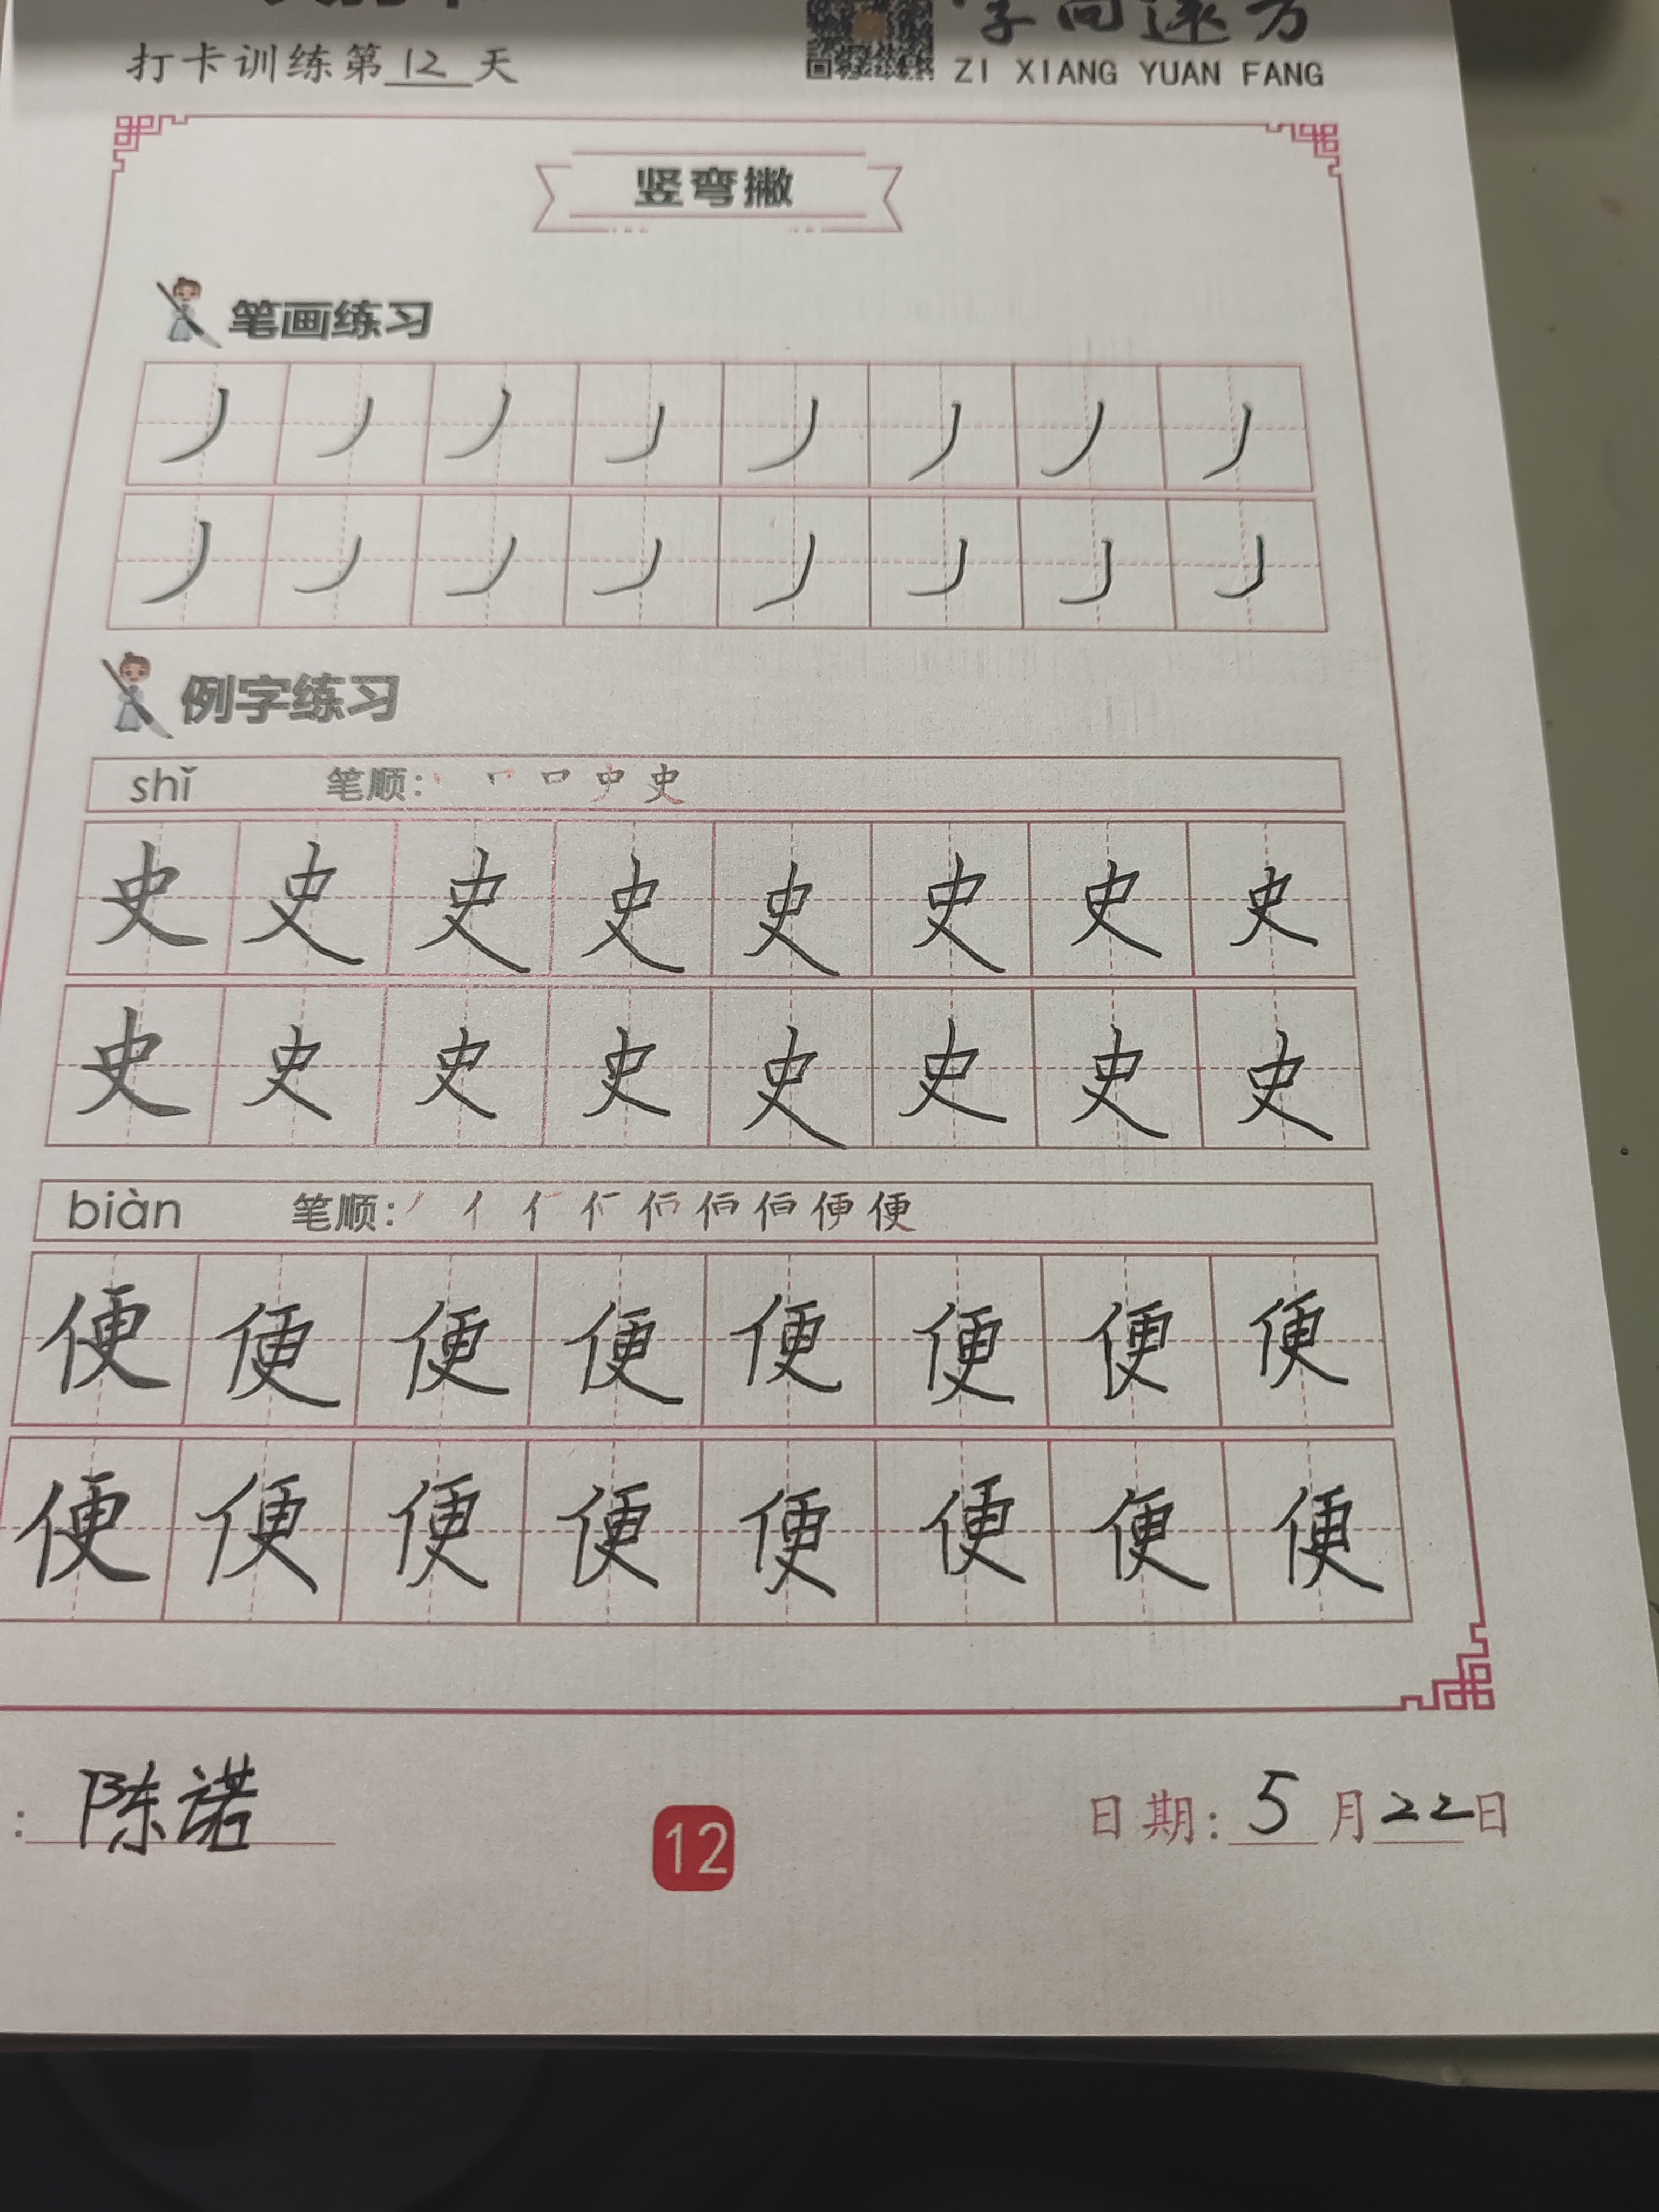 打卡训练第12天
字向远方
ZI XIANG YUAN FANG
竖弯撇
笔画练习
丿丿丿丿丿丿丿丿
丿丿丿丿丿丿丿丿
例字练习
shǐ 笔顺: 史
史史史史史史史史
史史史史史史史史
biàn 笔顺: 便
便便便便便便便便
便便便便便便便便
: 陈诺
12
日期: 5月22日